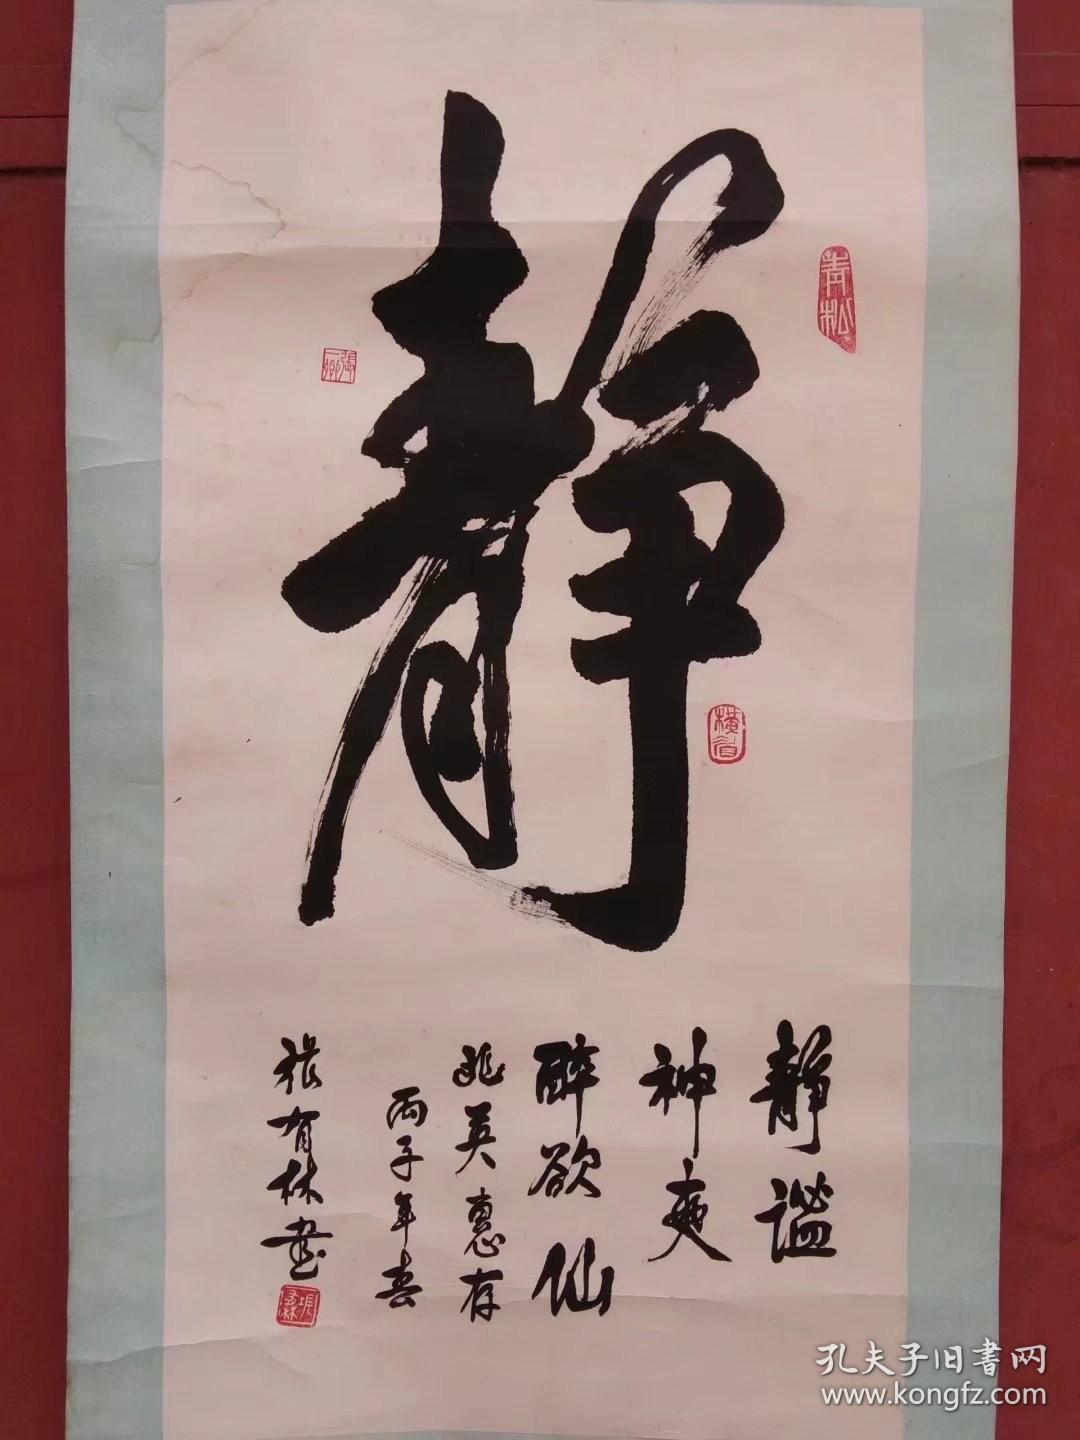 静
青松
静谧
神爽
醉欲仙
兆英惠存
丙子年春
张有林书
孔夫子旧書网
www.kongfz.com